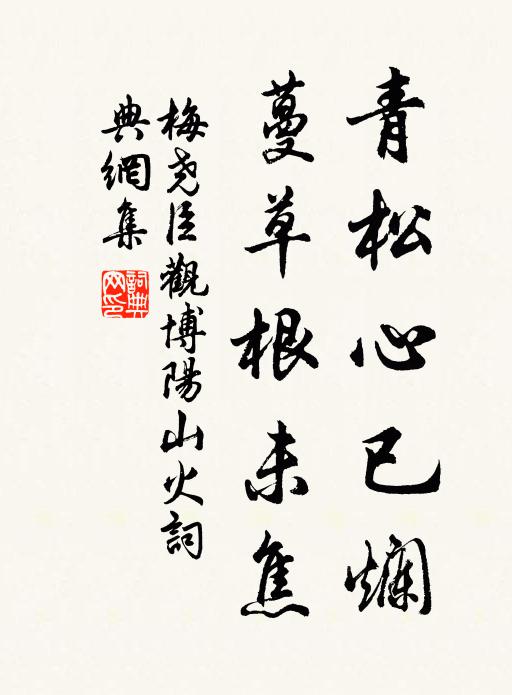 青松心已爛
蔓草根未焦
梅堯臣觀博陽山火詞
典網集
詞典網印